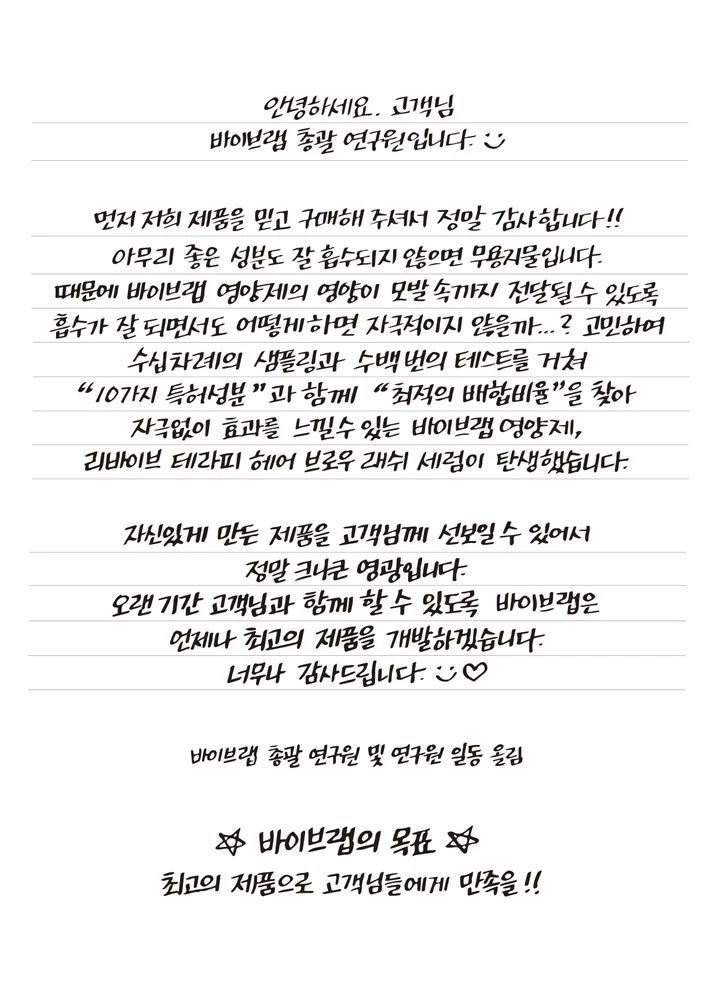 안녕하세요. 고객님
바이브랩 총괄 연구원입니다. :)
먼저 저희 제품을 믿고 구매해 주셔서 정말 감사합니다!!
아무리 좋은 성분도 잘 흡수되지 않으면 무용지물입니다.
때문에 바이브랩 영양제의 영양이 모발 속까지 전달될 수 있도록
흡수가 잘 되면서도 어떻게 하면 자극적이지 않을까...? 고민하여
수십차례의 샘플링과 수백번의 테스트를 거쳐
“10가지 특허성분”과 함께 “최적의 배합비율”을 찾아
자극없이 효과를 느낄 수 있는 바이브랩 영양제,
리바이브 테라피 헤어 브로우 래쉬 세럼이 탄생했습니다.
자신있게 만든 제품을 고객님께 선보일 수 있어서
정말 크나큰 영광입니다.
오랜 기간 고객님과 함께 할 수 있도록 바이브랩은
언제나 최고의 제품을 개발하겠습니다.
너무나 감사드립니다. :) ♡
바이브랩 총괄 연구원 및 연구원 일동 올림
☆ 바이브랩의 목표 ☆
최고의 제품으로 고객님들에게 만족을!!